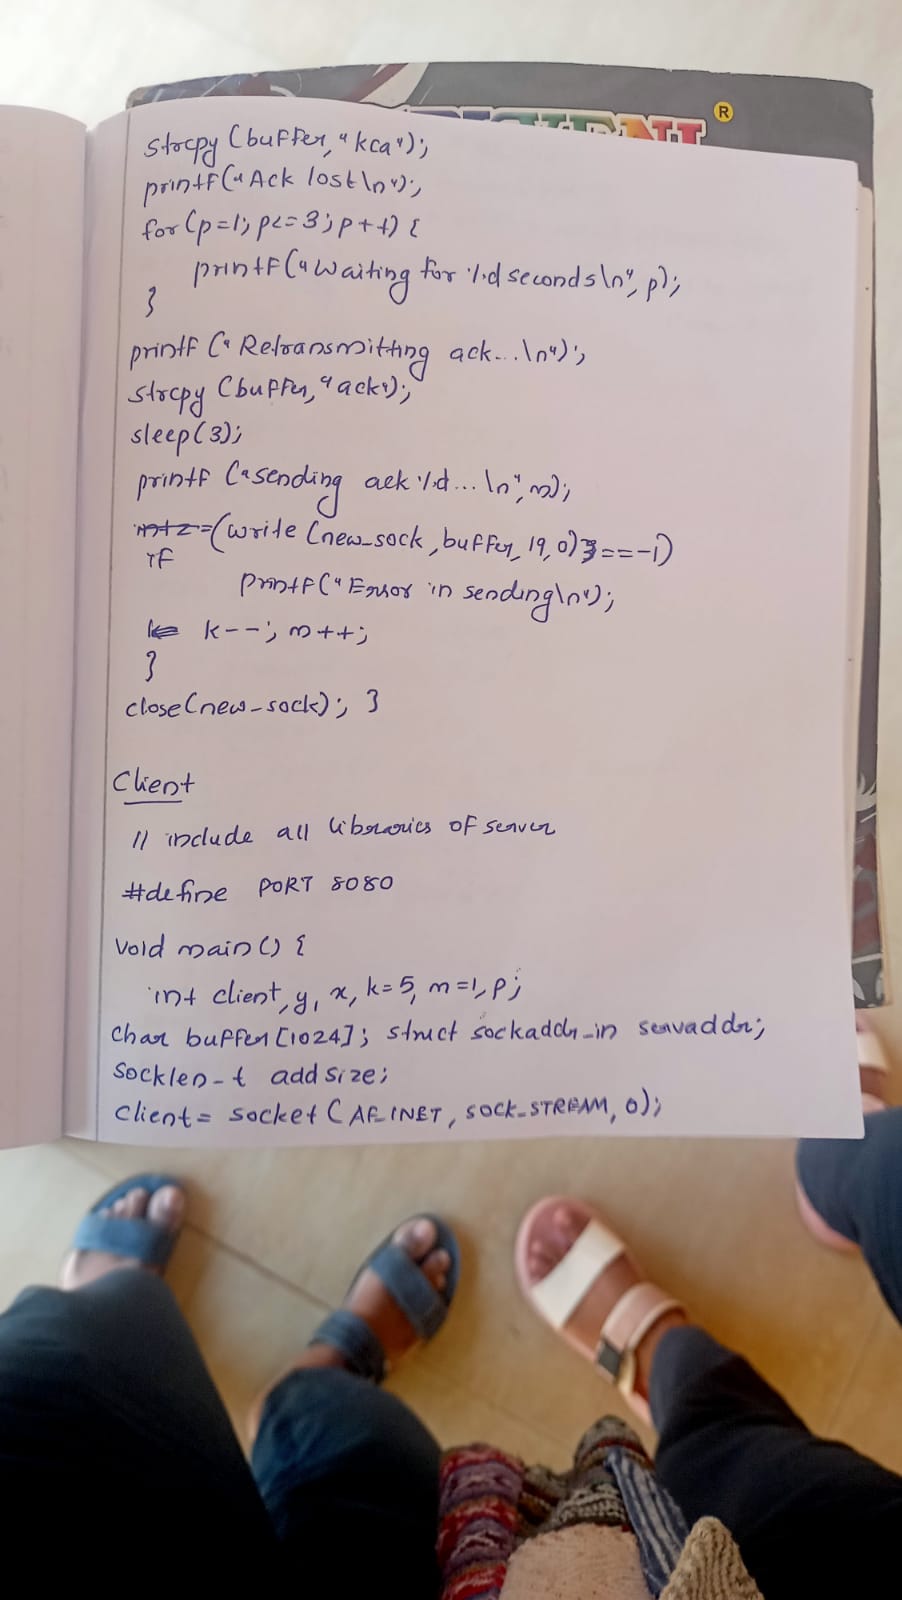 R
strcpy (buffer, "kca");
printf("Ack lost\n");
for (p=1; p<=3; p++) {
printf("Waiting for %d seconds\n", p);
}
printf (" Retransmitting ack...\n");
strcpy (buffer, "ack");
sleep(3);
printf ("sending ack %d... \n", m);
(write (new_sock, buffer, 19, 0) == -1)
if
printf(" Error in sending\n");
k--; m++;
}
close(new_sock); }
Client
// include all libraries of server
#define PORT 8080
void main() {
int client, y, x, k=5, m=1, p;
char buffer [1024]; struct sockaddr_in servaddr;
socklen_t add size;
client = socket (AF_INET, SOCK_STREAM, 0);